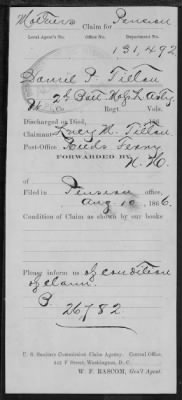 Mother's Claim for Pension
Local Agent's No. Office No. Department No.
131,492
Daniel P. Tilton
M. 2d Batt. Hvy. L. Arty.
Co. Regt. Vols.
Discharged or Died, 186
Claimant Lucy M. Tilton
Post-Office, Reeds Ferry
FORWARDED BY N. H.
of
Filed in Pension office,
Aug 10, 1866.
Condition of Claim as shown by our books
Please inform us of condition
of claim.
B.
26782
U. S. Sanitary Commission Claim Agency. Central Office.
244 F Street, Washington, D. C.
W. F. BASCOM, Gen'l Agent.